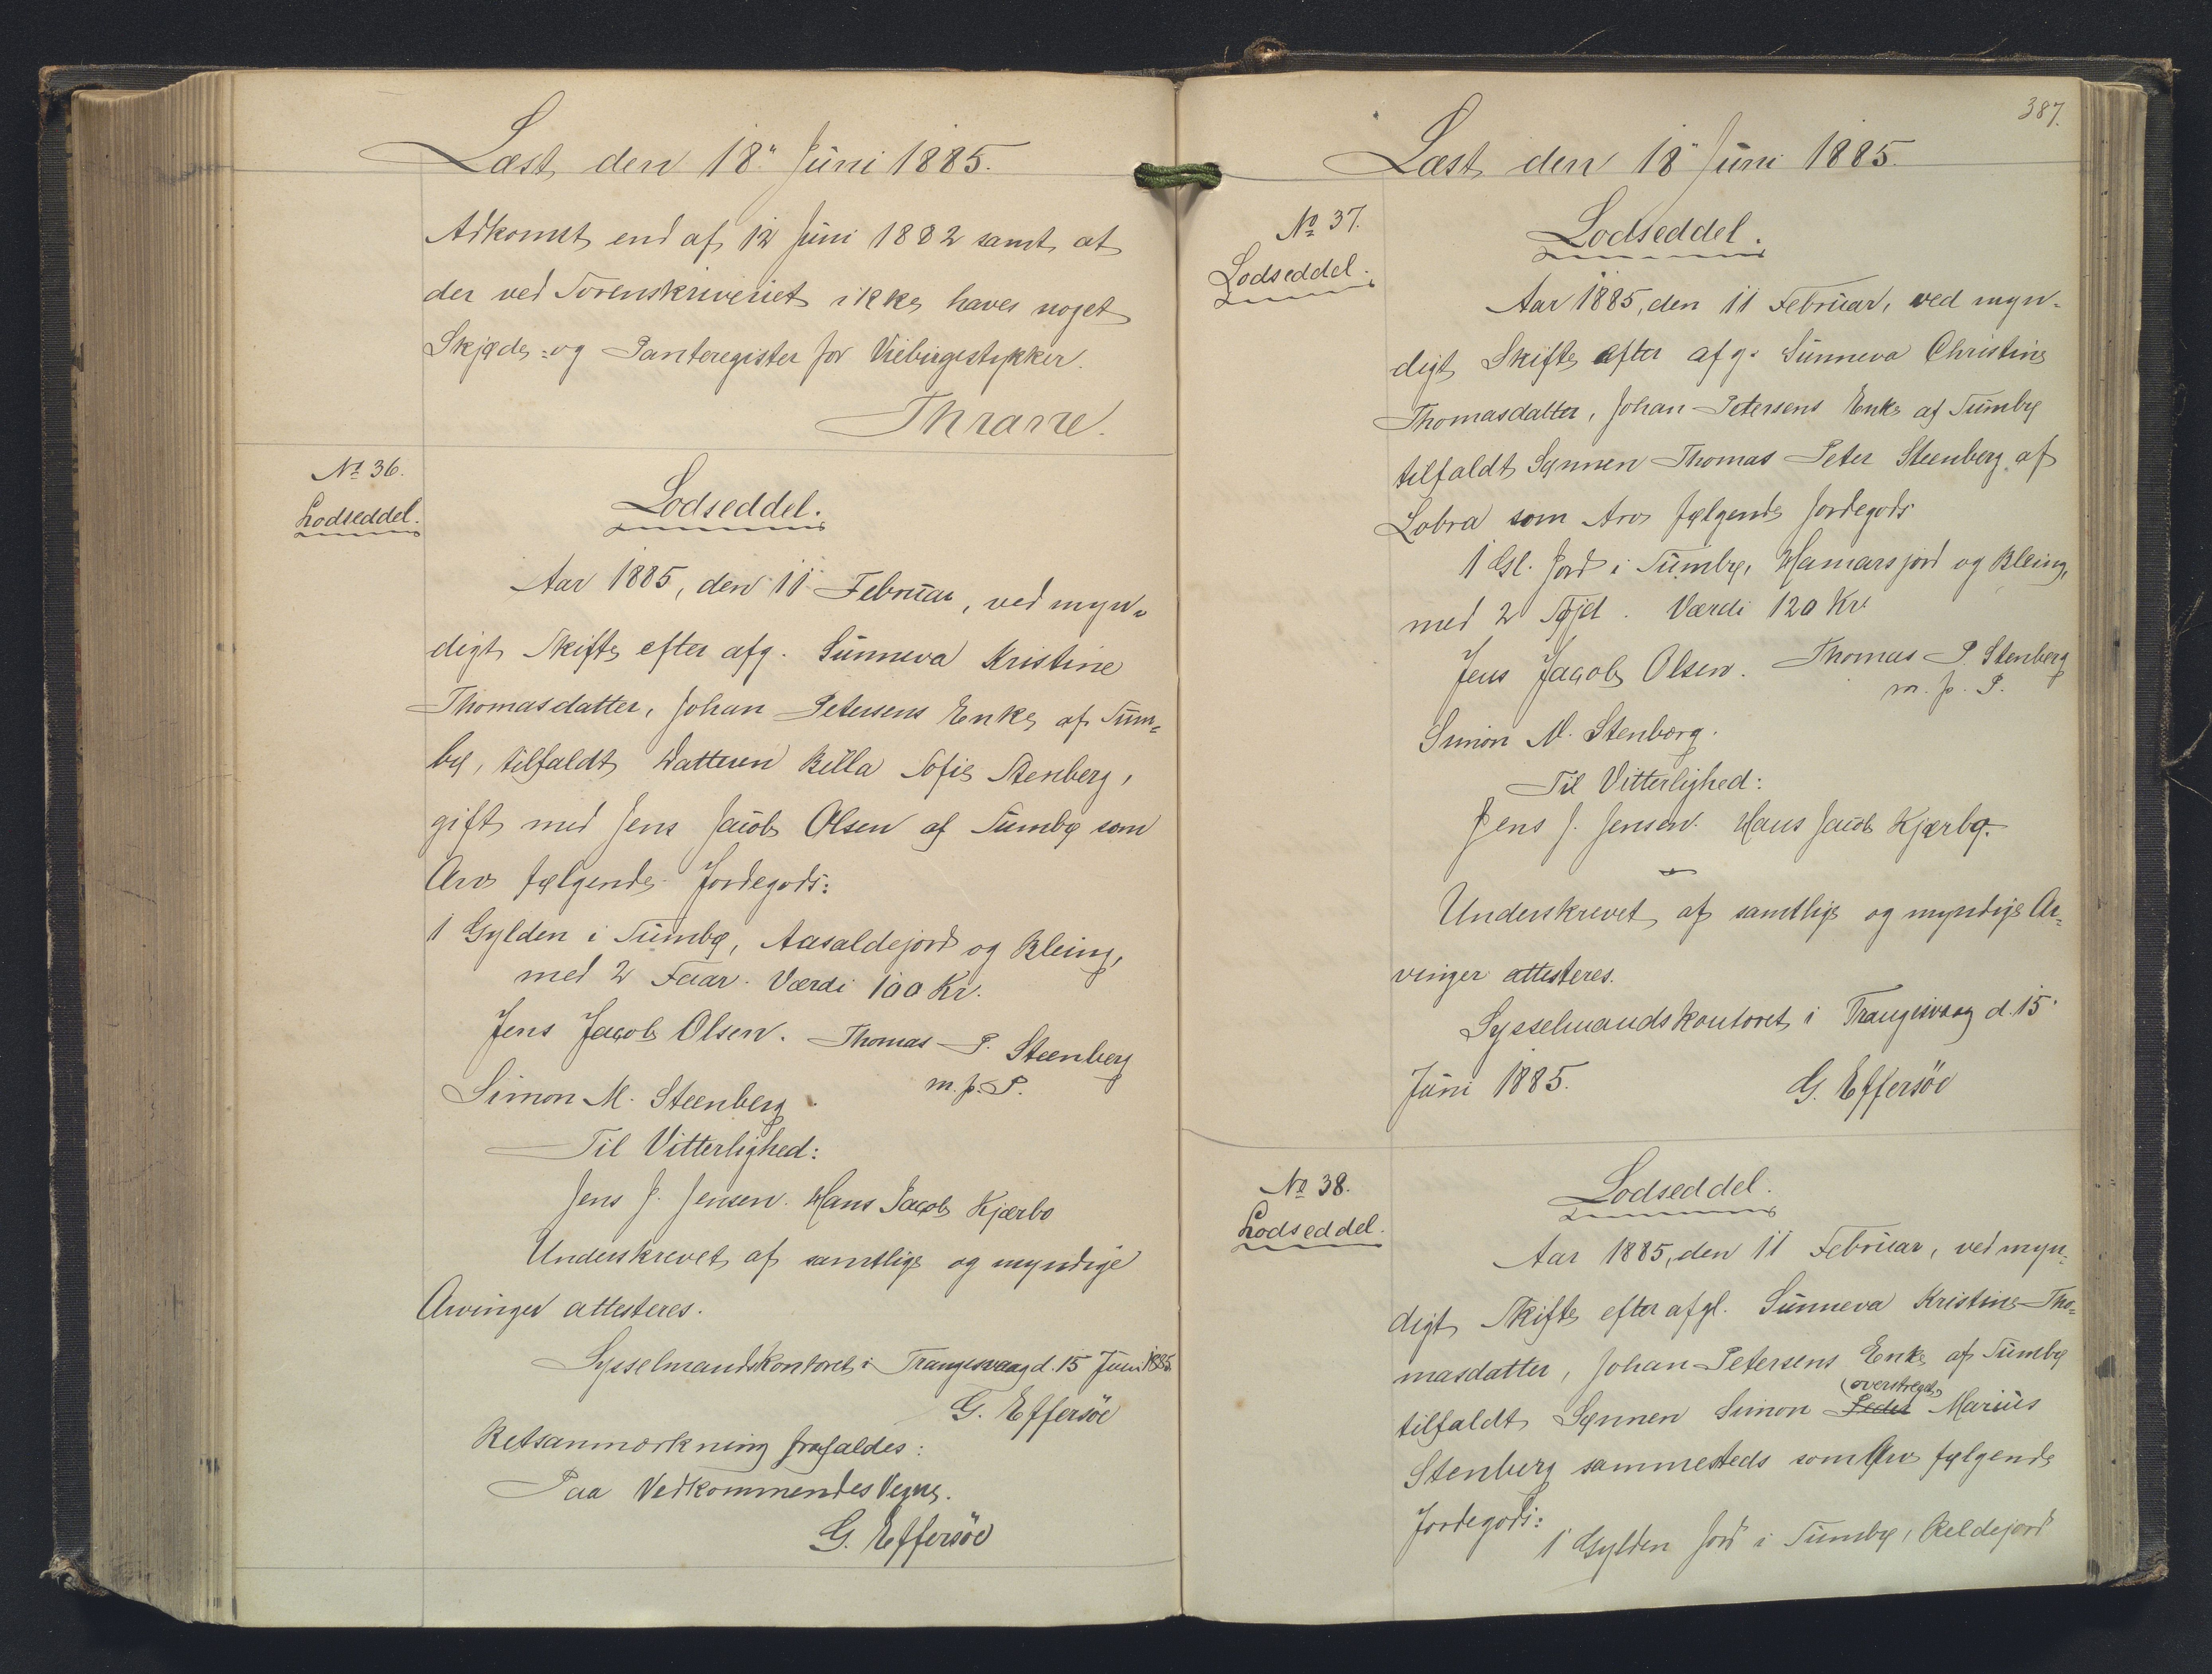 Læst den 18" Juni 1885.
Adkomst end af 12 Juni 1882 samt at
der ved Sorenskriveriet ikke haves noget
Skjøde- og Panteregister for Viebirgestykker.
Thrane.
No 36.
Lodseddel.
Lodseddel.
Aar 1885, den 11 Februar, ved myn-
digt Skifte efter afg. Sunneva Kristine
Thomasdatter, Johan Petersens Enke af Sum-
bø, tilfaldt Datteren Billa Sofie Stenberg,
gift med Jens Jacob Olsen af Sumbø som
Arv følgende Jordegods:
1 Gylden i Sumbø, Aasaldejord og Kleing,
med 2 Faar. Værdi 100 Kr.
Jens Jacob Olsen. Thomas P. Steenberg
m. p. P.
Simon M. Steenberg
Til Vitterlighed:
Jens J. Jensen. Hans Jacob Kjærbo
Underskrevet af samtlige og myndige
Arvinger attesteres.
Sysselmandskontoret i Trangisvaag d. 15 Juni 1885
G. Effersöe
Retsanmærkning frafaldes:
Paa Vedkommendes Vegne.
G. Effersöe
387.
Læst den 18" Juni 1885.
No 37.
Lodseddel.
Lodseddel.
Aar 1885, den 11 Februar, ved myn-
digt Skifte efter afg. Sunneva Christine
Thomasdatter, Johan Petersens Enke af Sumbø
tilfaldt Sønnen Thomas Peter Steenberg af
Lobra som Arv følgende Jordegods
1 Gl. Jord i Sumbø, Hamarsjord og Kleing,
med 2 Værdi 120 Kr.
Jens Jacob Olsen. Thomas P. Stenberg
m. p. P.
Simon M. Stenberg.
Til Vitterlighed:
Jens J. Jensen. Hans Jacob Kjærbo.
Underskrevet af samtlige og myndige Ar-
vinger attesteres.
Sysselmandskontoret i Trangisvaag d. 15
Juni 1885.
G. Effersöe
No 38.
Lodseddel.
Lodseddel.
Aar 1885, den 11 Februar, ved myn-
digt Skifte efter afgl. Sunneva Kristine Tho-
masdatter, Johan Petersens Enke af Sumbø
(overstreget)
tilfaldt Sønnen Simon Peder Marius
Stenberg sammesteds som Arv følgende
Jordegods:
1 Gylden Jord i Sumbø, Keldejord